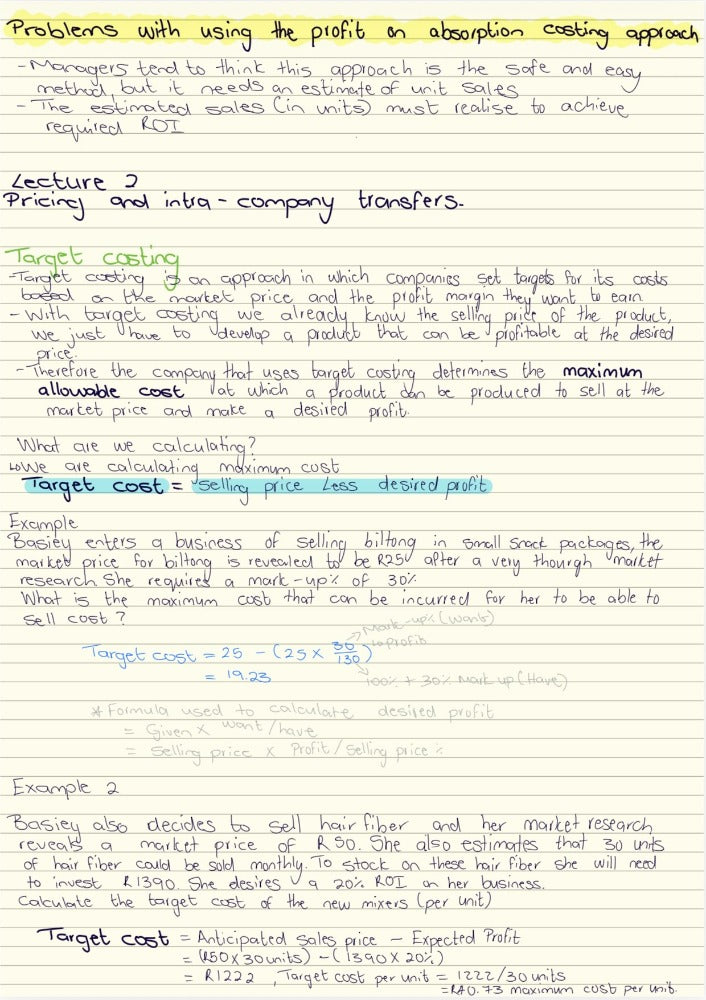 Problems with using the profit on absorption costing approach
- Managers tend to think this approach is the safe and easy
method, but it needs an estimate of unit sales
- The estimated sales (in units) must realise to achieve
required ROI
Lecture 2
Pricing and intra-company transfers.
Target costing
- Target costing is an approach in which companies set targets for its costs
based on the market price and the profit margin they want to earn
- With target costing we already know the selling price of the product,
we just have to develop a product that can be profitable at the desired
price.
- Therefore the company that uses target costing determines the maximum
allowable cost at which a product can be produced to sell at the
market price and make a desired profit.
What are we calculating?
↳ We are calculating maximum cost
Target cost = selling price less desired profit
Example
Basiey enters a business of selling biltong in small snack packages, the
market price for biltong is revealed to be R25 after a very thourgh market
research. She requires a mark-up% of 30%
What is the maximum cost that can be incurred for her to be able to
sell cost?
Mark-up% (Want)
↳ profit
Target cost = 25 - (25 × 30/130)
= 19.23
100% + 30% Mark up (Have)
* Formula used to calculate desired profit
= Given × want/have
= Selling price × Profit/Selling price %
Example 2
Basiey also decides to sell hair fiber and her market research
reveals a market price of R50. She also estimates that 30 units
of hair fiber could be sold monthly. To stock on these hair fiber she will need
to invest R1390. She desires a 20% ROI on her business.
Calculate the target cost of the new mixers (per unit)
Target cost = Anticipated sales price - Expected Profit
= (R50 × 30 units) - (1390 × 20%)
= R1222, Target cost per unit = 1222/30 units
= R40.73 maximum cost per unit.